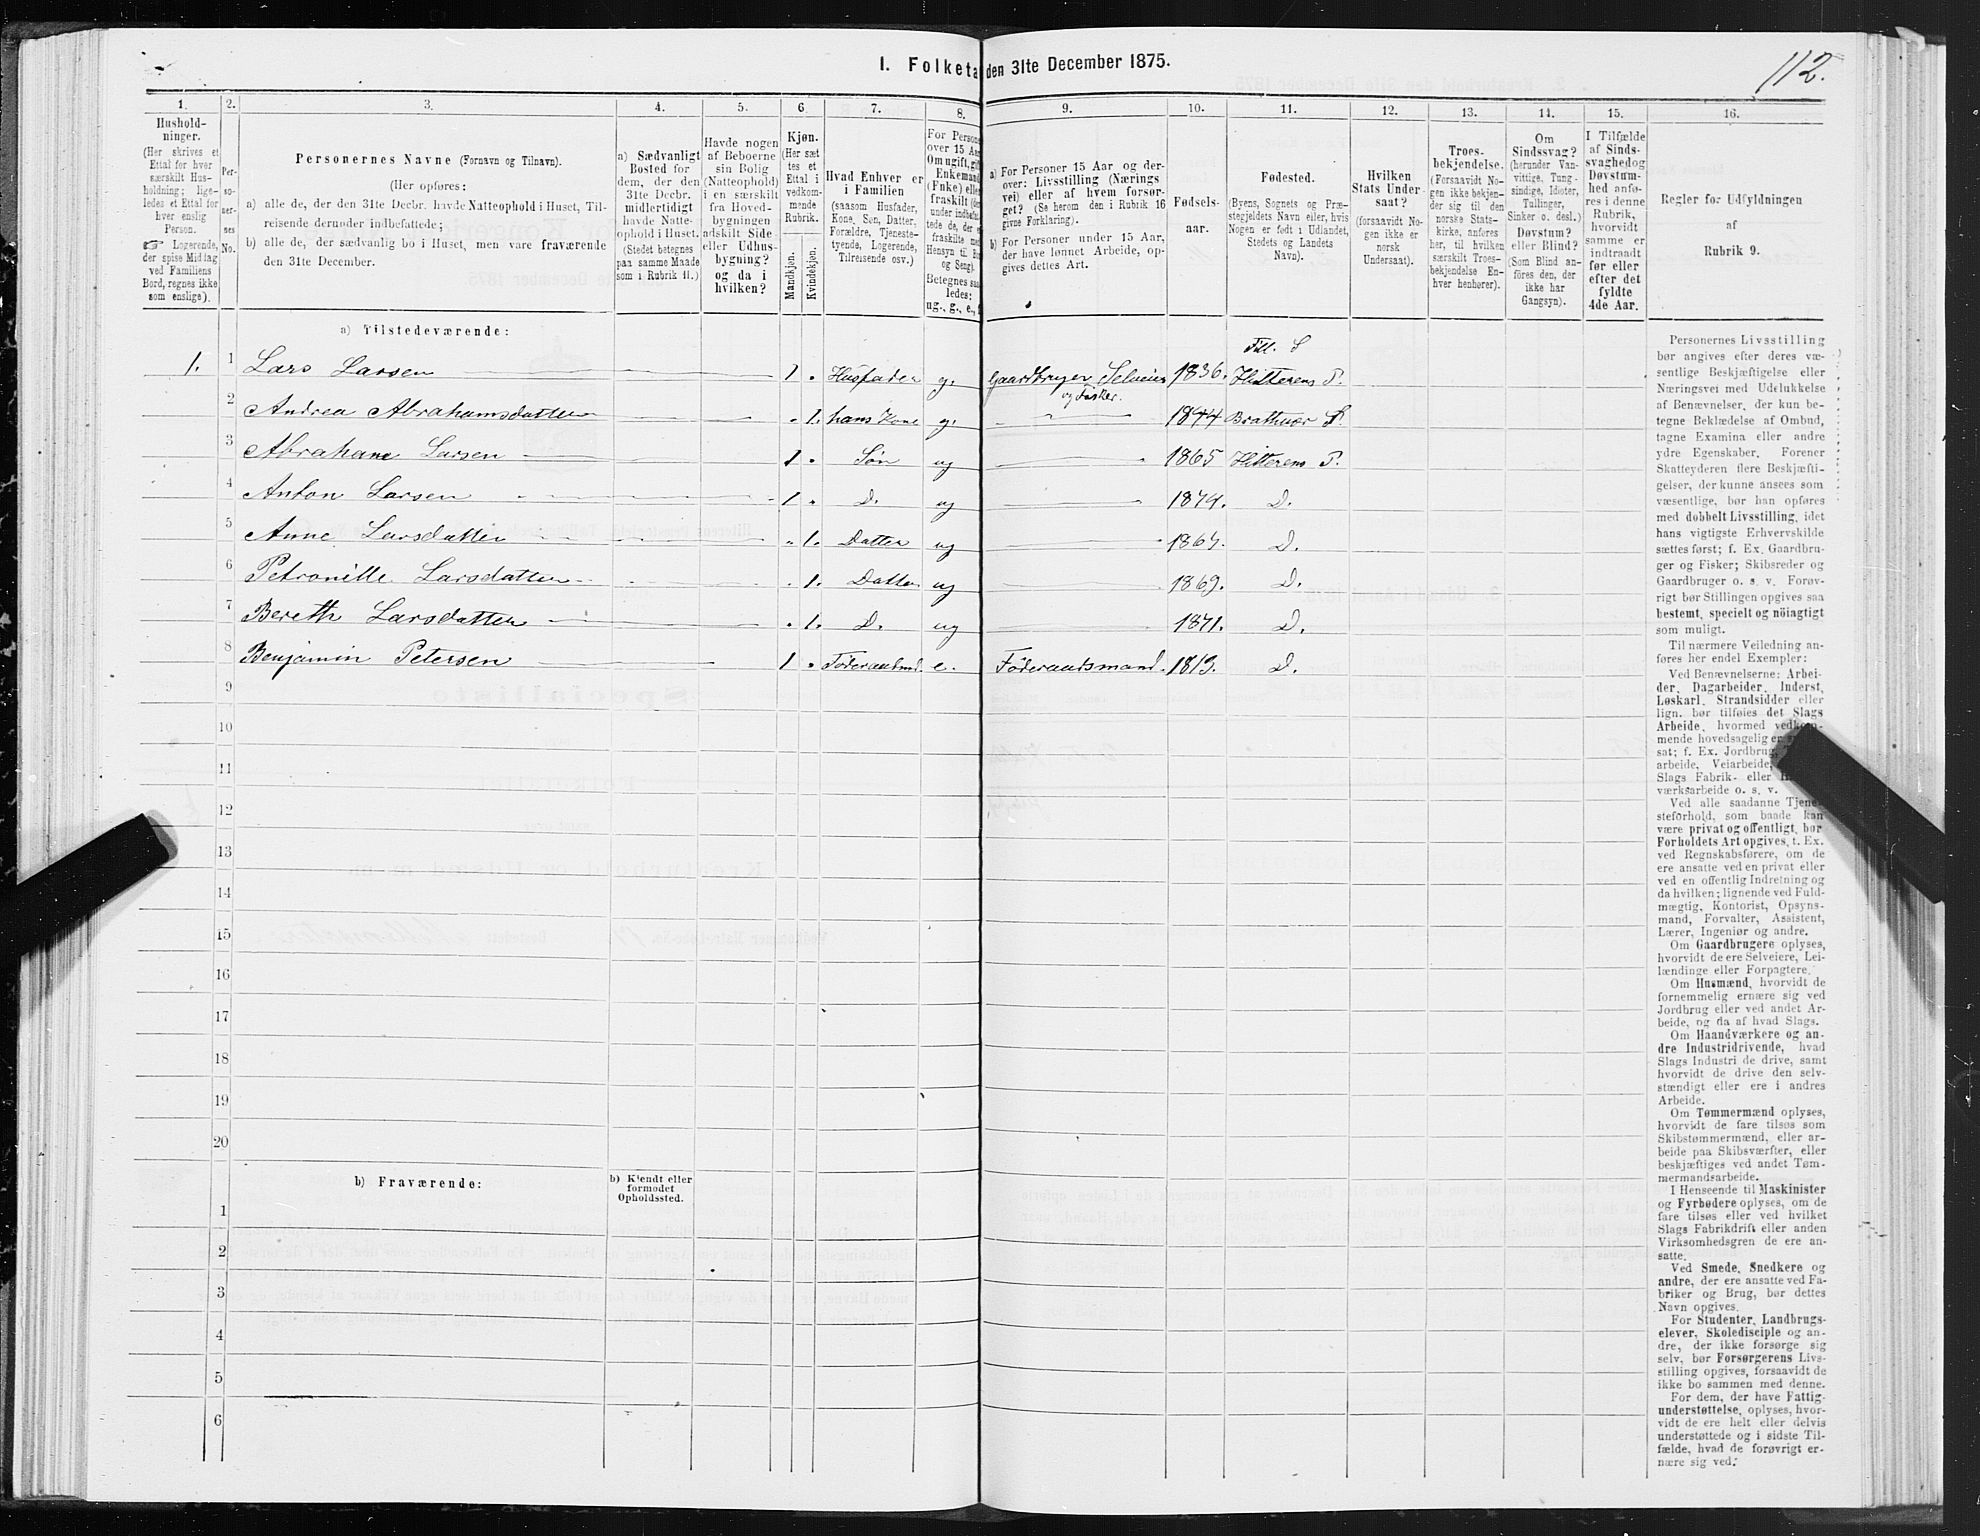 I. Folketa den 31te December 1875.
112.
1. 2. 3. 4. 5. 6. 7. 8. 9. 10. 11. 12. 13. 14. 15. 16.
Hushold-
ninger.
(Her skrives et
Ettal for hver
særskilt Hus-
holdning; lige-
ledes et Ettal for
hver enslig
Person.
☞ Logerende,
der spise Middag
ved Familiens
Bord, regnes ikke
som enslige).
Per-
so-
ner-
nes
No.
Personernes Navne (Fornavn og Tilnavn).
(Her opføres:
a) alle de, der den 31te Decbr. havde Natteophold i Huset, Til-
reisende derunder indbefattede;
b) alle de, der sædvanlig bo i Huset, men vare fraværende
den 31te December.
a) Sædvanligt
Bosted for
dem, der den
31te Decbr.
midlertidigt
havde Natte-
ophold i Huset.
(Stedet betegnes
paa samme Maade
som i Rubrik 11.)
Havde nogen
af Beboerne
sin Bolig
(Natteophold)
i en særskilt
fra Hoved-
bygningen
adskilt Side-
eller Udhus-
bygning?
og da i
hvilken?
Kjøn.
(Her sæt
tes et
Ettal i
vedkom-
mende
Rubrik.
Mandkjøn.
Kvindekjøn.
Hvad Enhver er
i Familien
(saasom Husfader,
Kone, Søn, Datter,
Forældre, Tjeneste-
tyende, Logerende,
Tilreisende osv.)
For Persone
over 15 Aa
Om ugift, gif
Enkemand
(Enke) elle
fraskilt (der
under indbefat
tede de, der e
fraskilte med
Hensyn til Bo
og Seng).
Betegnes saa
ledes:
ug., g., e., f
a) For Personer 15 Aar og der-
over: Livsstilling (Nærings
vei) eller af hvem forsør-
get? (Se herom den i Rubrik 16
givne Forklaring).
b) For Personer under 15 Aar,
der have lønnet Arbeide, op-
gives dettes Art.
Fødsels-
aar.
Fødested.
(Byens, Sognets og Præ-
stegjeldets Navn eller, hvis
Nogen er født i Udlandet,
Stedets og Landets
Navn).
Hvilken
Stats Under-
saat?
(forsaavidt No-
gen ikke er
norsk
Undersaat).
Troes-
bekjendelse.
(Forsaavidt No-
gen ikke bekjen-
der sig til den
norske Stats-
kirke, anføres
her, til hvilken
særskilt Troes-
bekjendelse En-
hver henhører).
Om
Sindssvag?
(herunder Van-
vittige, Tung-
sindige, Idioter,
Tullinger,
Sinker o. desl.)
Døvstum?
eller Blind?
(Som Blind an-
føres den, der
ikke har
Gangsyn).
I Tilfælde
af Sinds-
svaghed og
Døvstum-
hed anfø-
res i denne
Rubrik,
hvorvidt
samme er
indtraadt
før eller
efter det
fyldte
4de Aar.
Regler for Udfyldningen
af
Rubrik 9.
a) Tilstedeværende:
Till. S
1. 1 Lars Larsen 1 Husfader g. Gaardbruger Selveier 1836. Hitterens P.
og Fisker.
2 Andrea Abrahamsdatter 1. hans Kone g. 1844 Brathvær S.
3 Abraham Larsen 1 Søn ug 1865 Hitterens P.
4 Anton Larsen 1 D. ug 1874. D.
5 Anne Larsdatter 1. Datter ug 1867. D.
6 Petronille Larsdatter 1. Datter ug 1869. D.
7 Bereth Larsdatter 1. D. ug 1871. D.
8 Benjamin Petersen 1 Föderaadmd. e. Föderaadsmand. 1813. D.
9
10
11
12
13
14
15
16
17
18
19
20
b) Fraværende:
b) Kjendt eller
formodet
Opholdssted.
1
2
3
4
5
6
Personernes Livsstilling
bør angives efter deres væ-
sentlige Beskjæftigelse eller
Næringsvei med Udelukkelse
af Benævnelser, der kun be-
tegne Beklædelse af Ombud,
tagne Examina eller andre
ydre Egenskaber. Forener
Skatteyderen flere Beskjæfti-
gelser, der kunne ansees som
væsentlige, bør han opføres
med dobbelt Livsstilling, idet
hans vigtigste Erhvervskilde
sættes først; f. Ex. Gaardbru-
ger og Fisker; Skibsreder og
Gaardbruger o. s. v. Forøv-
rigt bør Stillingen opgives saa
bestemt, specielt og nöiagtigt
som muligt.
Til nærmere Veiledning an-
føres her endel Exempler:
Ved Benævnelserne: Arbei-
der, Dagarbeider, Inderst,
Løskarl, Strandsidder eller
lign. bør tilføies det Slags
Arbeide, hvormed vedkom-
mende hovedsagelig er
sat; f. Ex. Jordbrug,
arbeide, Veiarbeide,
Slags Fabrik- eller
værksarbeide o. s. v.
Ved alle saadanne Tjene-
steforhold, som baade kan
være privat og offentligt, bør
Forholdets Art opgives, t. Ex.
ved Regnskabsførere, om de
ere ansatte ved en privat eller
ved en offentlig Indretning og
da hvilken; lignende ved Fuld-
mægtig, Kontorist, Opsyns-
mand, Forvalter, Assistent,
Lærer, Ingeniør og andre.
Om Gaardbrugere oplyses,
hvorvidt de ere Selveiere, Lei-
lændinge eller Forpagtere.
Om Husmænd, hvorvidt de
fornemmelig ernære sig ved
Jordbrug eller ved andet Ar-
beide, og da af hvad Slags.
Om Haandværkere og an-
dre Industridrivende, hvad
Slags Industri de drive, samt
hvorvidt de drive den selv-
stændigt eller ere i andres
Arbeide.
Om Tømmermænd oplyses,
hvorvidt de fare tilsøs som
Skibstømmermænd, eller ar-
beide paa Skibsværfter, eller
beskjæftiges ved andet Tøm-
mermandsarbeide.
I Henseende til Maskinister
og Fyrbødere oplyses, om de
fare tilsøs eller ved hvilket
Slags Fabrikdrift eller anden
Virksomhedsgren de ere an-
satte.
Ved Smede, Snedkere og
andre, der ere ansatte ved Fa-
briker og Brug, bør dettes
Navn opgives.
For Studenter, Landbrugs-
elever, Skoledisciple og an-
dre, der ikke forsørge sig
selv, bør Forsørgerens Livs-
stilling opgives, forsaavidt de
ikke bo sammen med denne.
For dem, der have Fattig-
understøttelse, oplyses, hvor-
vidt de ere helt eller delvis
understøttede og i sidste Til-
fælde, hvad de forøvrigt er-
nære sig ved.